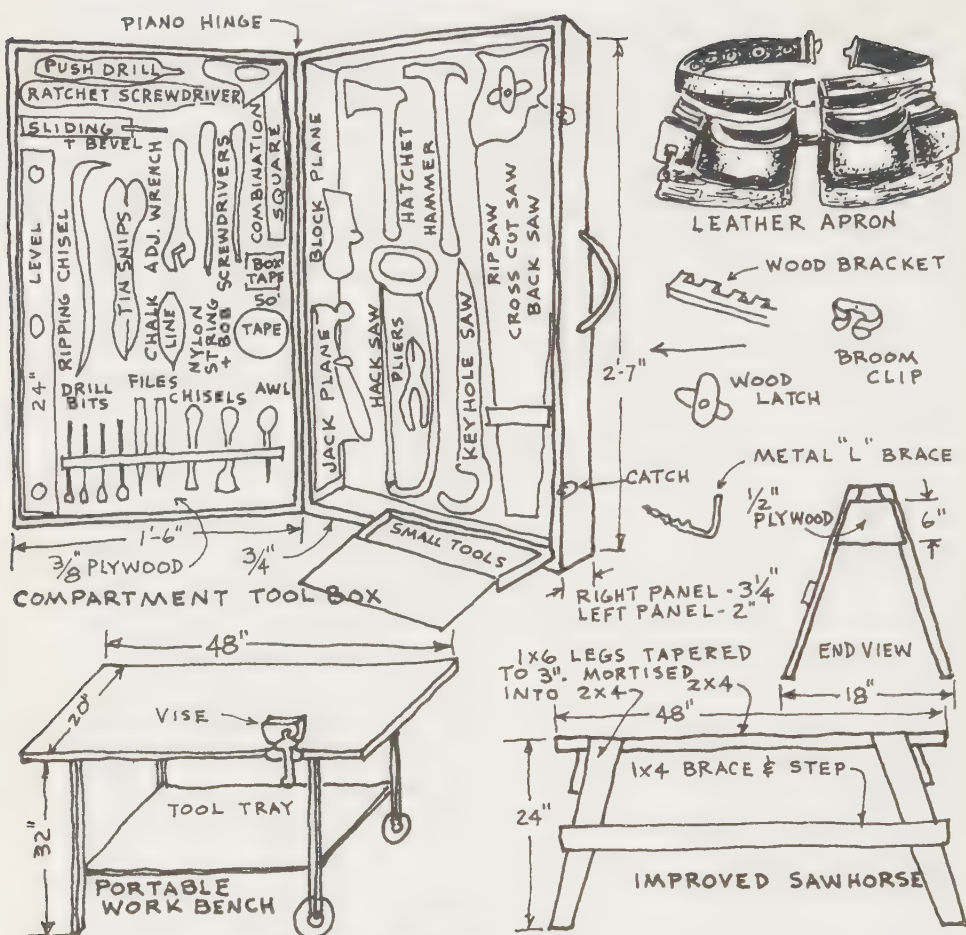 PIANO HINGE
PUSH DRILL
RATCHET SCREWDRIVER
SLIDING
T BEVEL
24" LEVEL
RIPPING CHISEL
TIN SNIPS
ADJ. WRENCH
SCREWDRIVERS
COMBINATION
SQUARE
CHALK
LINE
NYLON
STRING
+ BOB
BOX
TAPE
50'
TAPE
DRILL
BITS
FILES
CHISELS
AWL
BLOCK PLANE
JACK PLANE
HATCHET
HAMMER
HACK SAW
PLIERS
KEYHOLE SAW
RIPSAW
CROSS CUT SAW
BACK SAW
SMALL TOOLS
2'-7"
CATCH
1'-6"
3/8" PLYWOOD
3/4"
RIGHT PANEL - 3 1/4"
LEFT PANEL - 2"
COMPARTMENT TOOL BOX
LEATHER APRON
WOOD BRACKET
BROOM
CLIP
WOOD
LATCH
METAL "L" BRACE
1/2"
PLYWOOD
6"
END VIEW
18"
48"
20"
VISE
TOOL TRAY
32"
PORTABLE
WORK BENCH
1x6 LEGS TAPERED
TO 3". MORTISED
INTO 2x4
2x4
48"
1x4 BRACE & STEP
24"
IMPROVED SAWHORSE